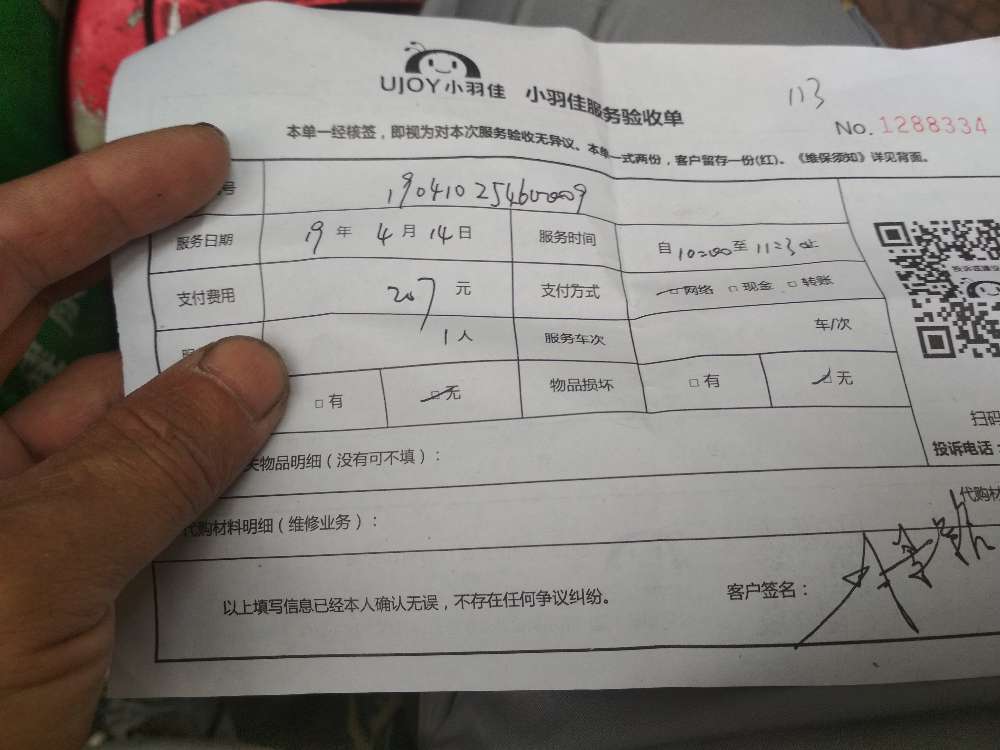 UJOY小羽佳 小羽佳服务验收单
113
No.1288334
本单一经核签，即视为对本次服务验收无异议、本单一式两份，客户留存一份(红)。《维保须知》详见背面。
号
服务日期 19年4月14日 服务时间 自10:00至11:23止
支付费用 207元 支付方式 □网络 □现金 □转账
1人 服务车次 车/次
□有 □无 物品损坏 □有 □无
扫码
物品明细（没有可不填）：
投诉电话：
代购材料明细（维修业务）：
代购材
以上填写信息已经本人确认无误，不存在任何争议纠纷。 客户签名：